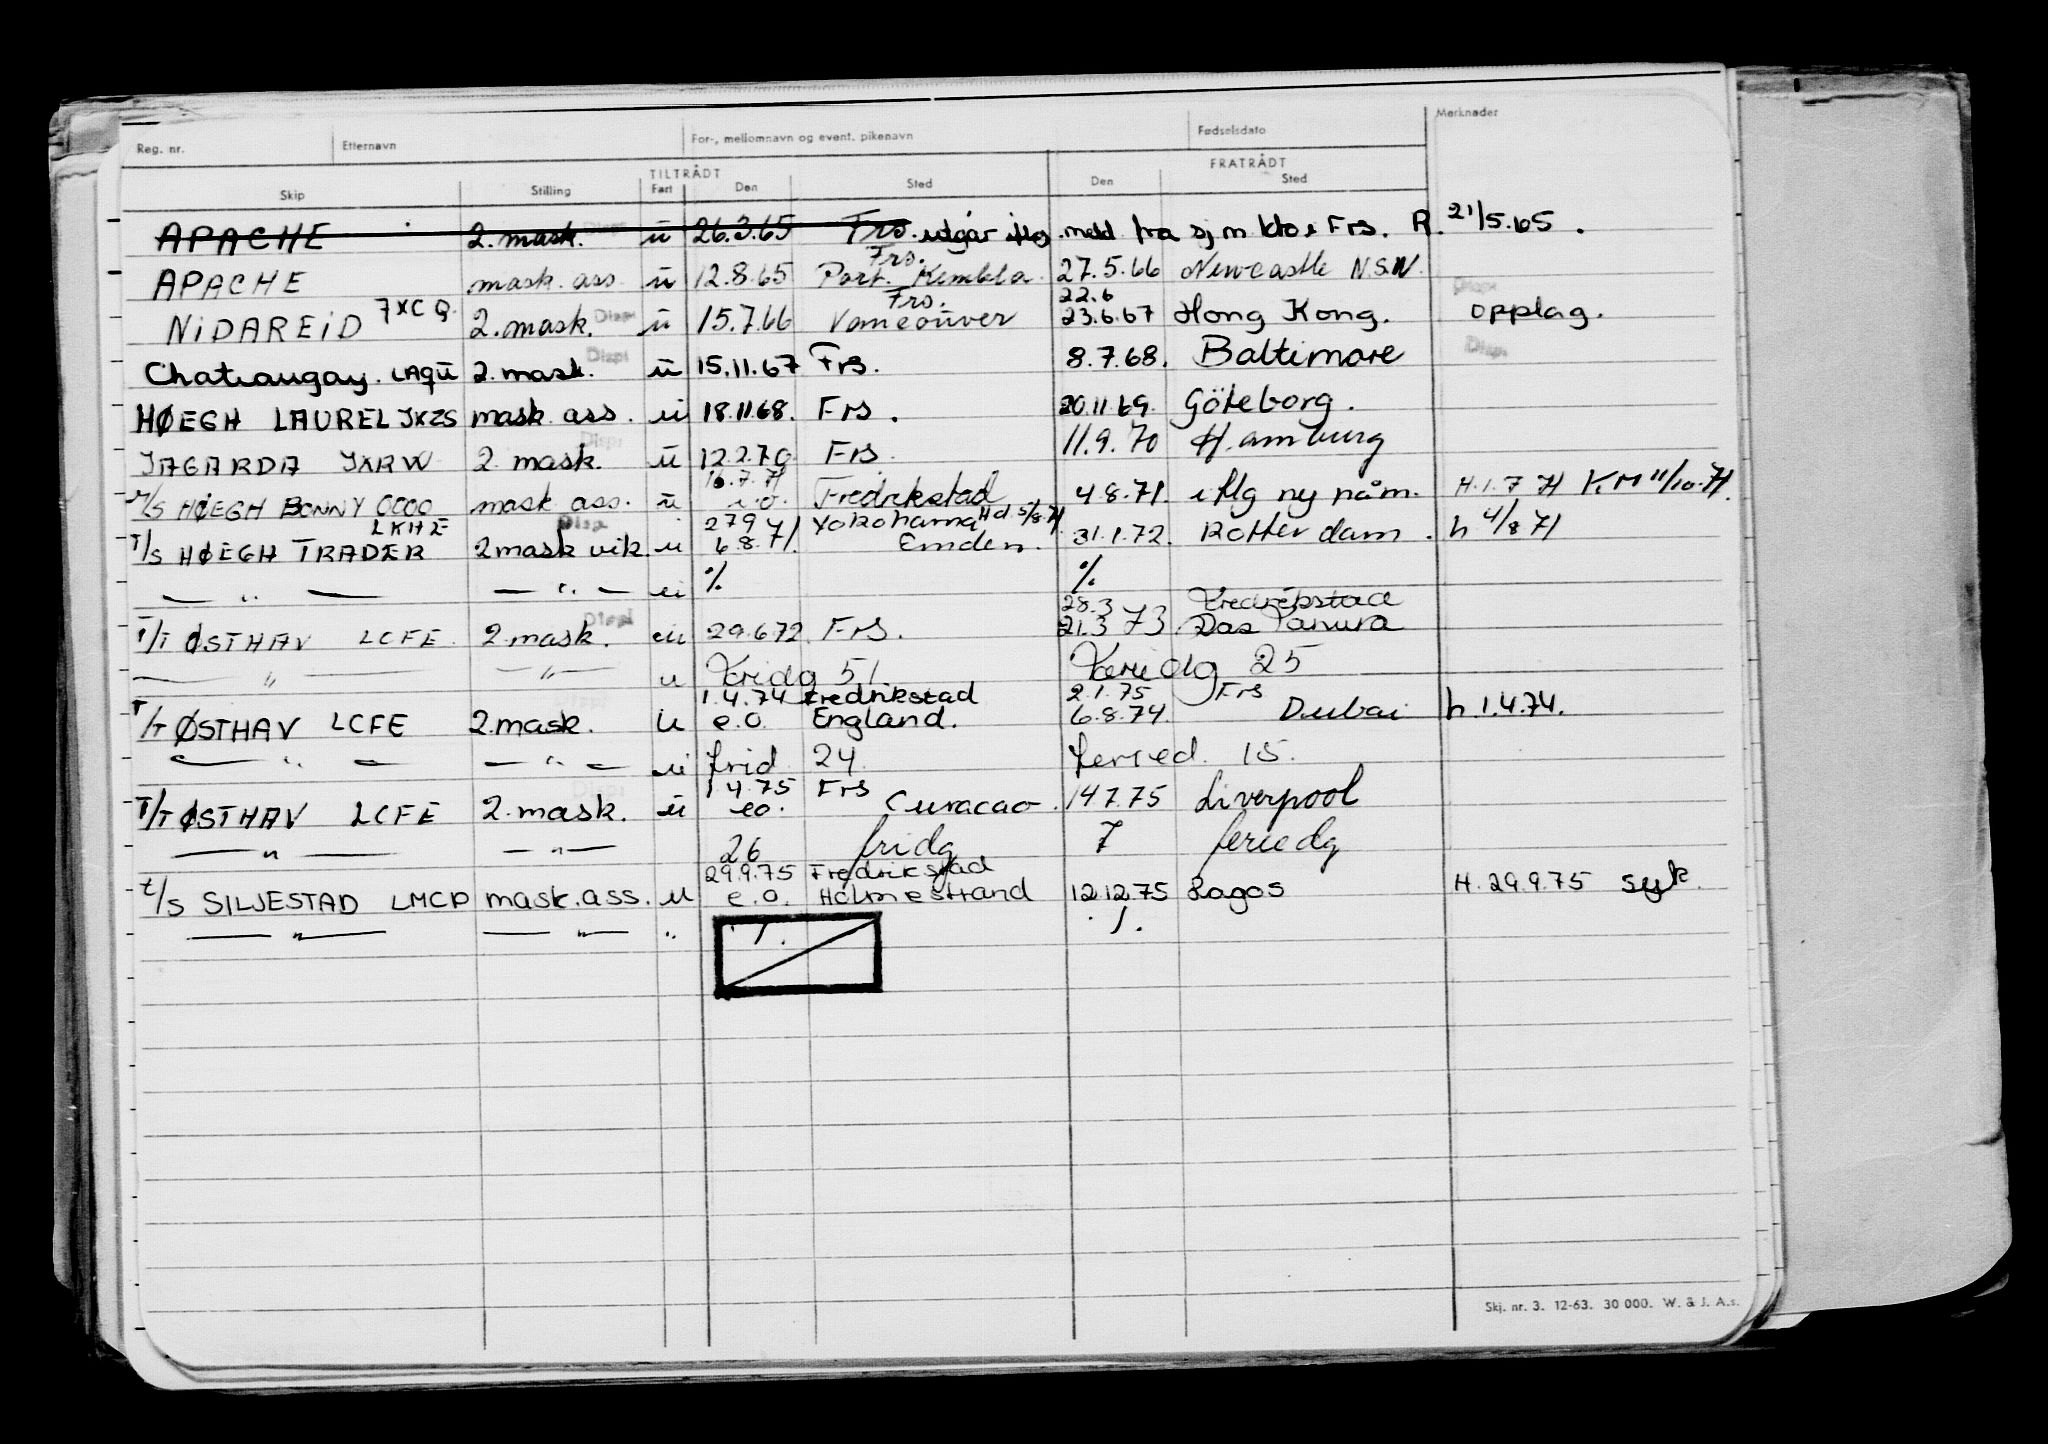 Reg. nr. Etternavn For-, mellomnavn og event. pikenavn Fødselsdato Merknader
TILTRÅDT FRATRÅDT
Skip Stilling Fart Den Sted Den Sted
APACHE 2. mask. ü 26.3.65 Frs. utgår iflg. meld fra sj m kto i Frs. R. 21/5.65.
Frs.
APACHE mask. ass. ü 12.8.65 Port. Kembla 27.5.66 Newcastle N.S.W.
Frs. 22.6
NiDAREiD 7XCQ 2. mask. Dispi ü 15.7.66 Vancouver 23.6.67 Hong Kong. opplag.
Chateaugay. LAQU 2. mask. Dispi ü 15.11.67 Frs. 8.7.68. Baltimore Dispi
HØEGH LAUREL JXZS mask. ass. ü 18.11.68. Frs. 20.11.69. Göteborg.
JAGARDA JXRW 2. mask. Dispi ü 12.2.70 Frs. 11.9.70 Hamburg
16.7.71
M/S HØEGH BONNY OOOO mask ass. ü Fredrikstad 4.8.71. iflg ny påm. H.1.7 71 KM 11/10.71.
LKHE Disp. 27.9 71 Yokohama Hd. 5/8.71
T/S HØEGH TRADER 2 mask vik. u 6.8.71. Emden. 31.1.72. Rotterdam. h 4/8 71
— " — — " — u % %
28.3 Fredrikstad
T/T ØSTHAV LCFE 2 mask. Dispi u 29.6.72. Frs. 21.3 73 Ras Tanura
— " — — " — u Fridg 51 Feriedg 25
1.4.74 Fredrikstad 2.1.75 Frs
T/T ØSTHAV LCFE 2. mask. u e.o. England. 6.8.74. Dubai h 1.4.74.
— " — — " — u frid 24 feried. 15.
1.4.75 Frs
T/T ØSTHAV LCFE 2. mask. u eo. Curacao. 14.7.75 Liverpool
— " — — " — 26 fridg 7 feriedg
29.9.75 Fredrikstad
t/s SILJESTAD LMCP mask. ass. u e.o. Holmestrand 12.12.75 Lagos H. 29.9.75 syk.
— " — — " — " ./. ./.
Skj. nr. 3. 12-63. 30 000. W. & J. A.s.